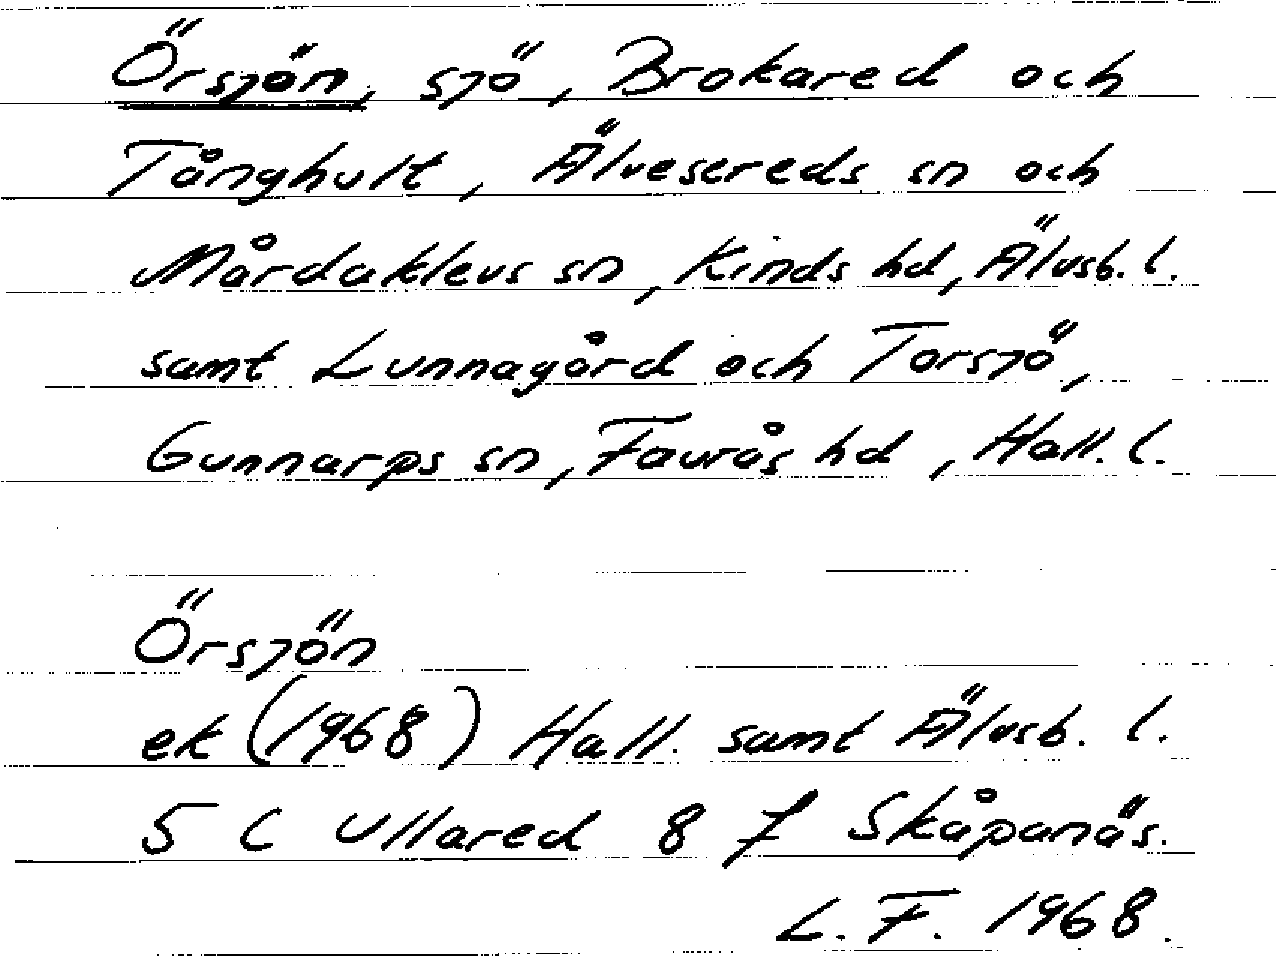 Örsjön, sjö, Brokared och
Tånghult, Älvesereds sn och
Mårdaklevs sn, Kinds hd, Älvsb. l.
samt Lunnagård och Torsjö,
Gunnarps sn, Faurås hd, Hall. l.
Örsjön
ek (1968) Hall. samt Älvsb. l.
5 C Ullared 8 f Skåpanäs.
L. F. 1968.